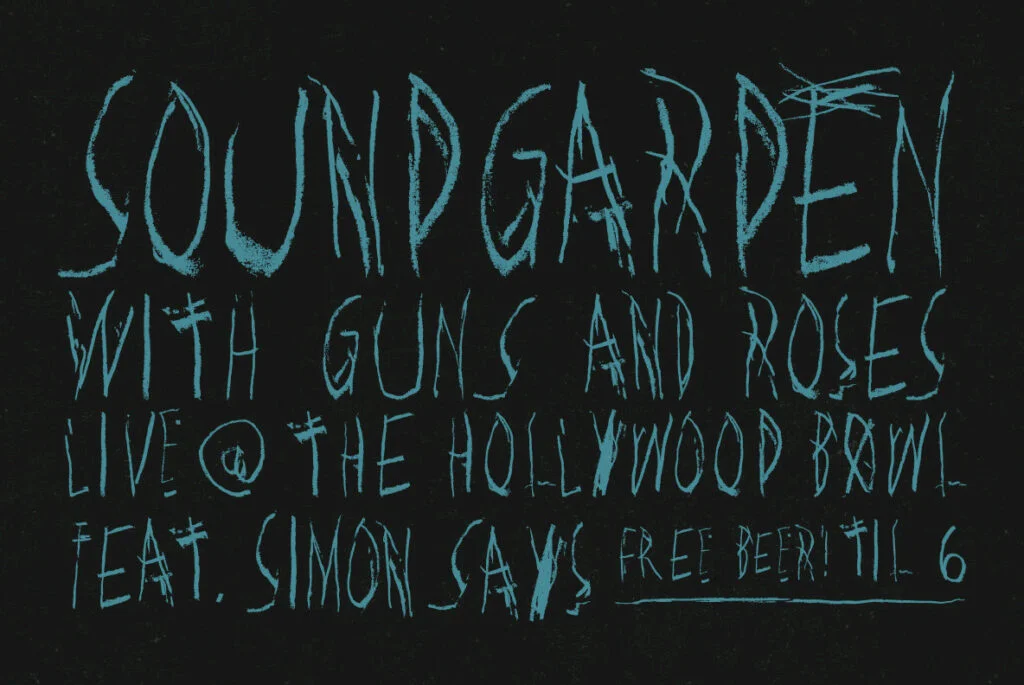 SOUNDGARDEN
WITH GUNS AND ROSES
LIVE @ THE HOLLYWOOD BOWL
FEAT. SIMON SAYS FREE BEER! TIL 6